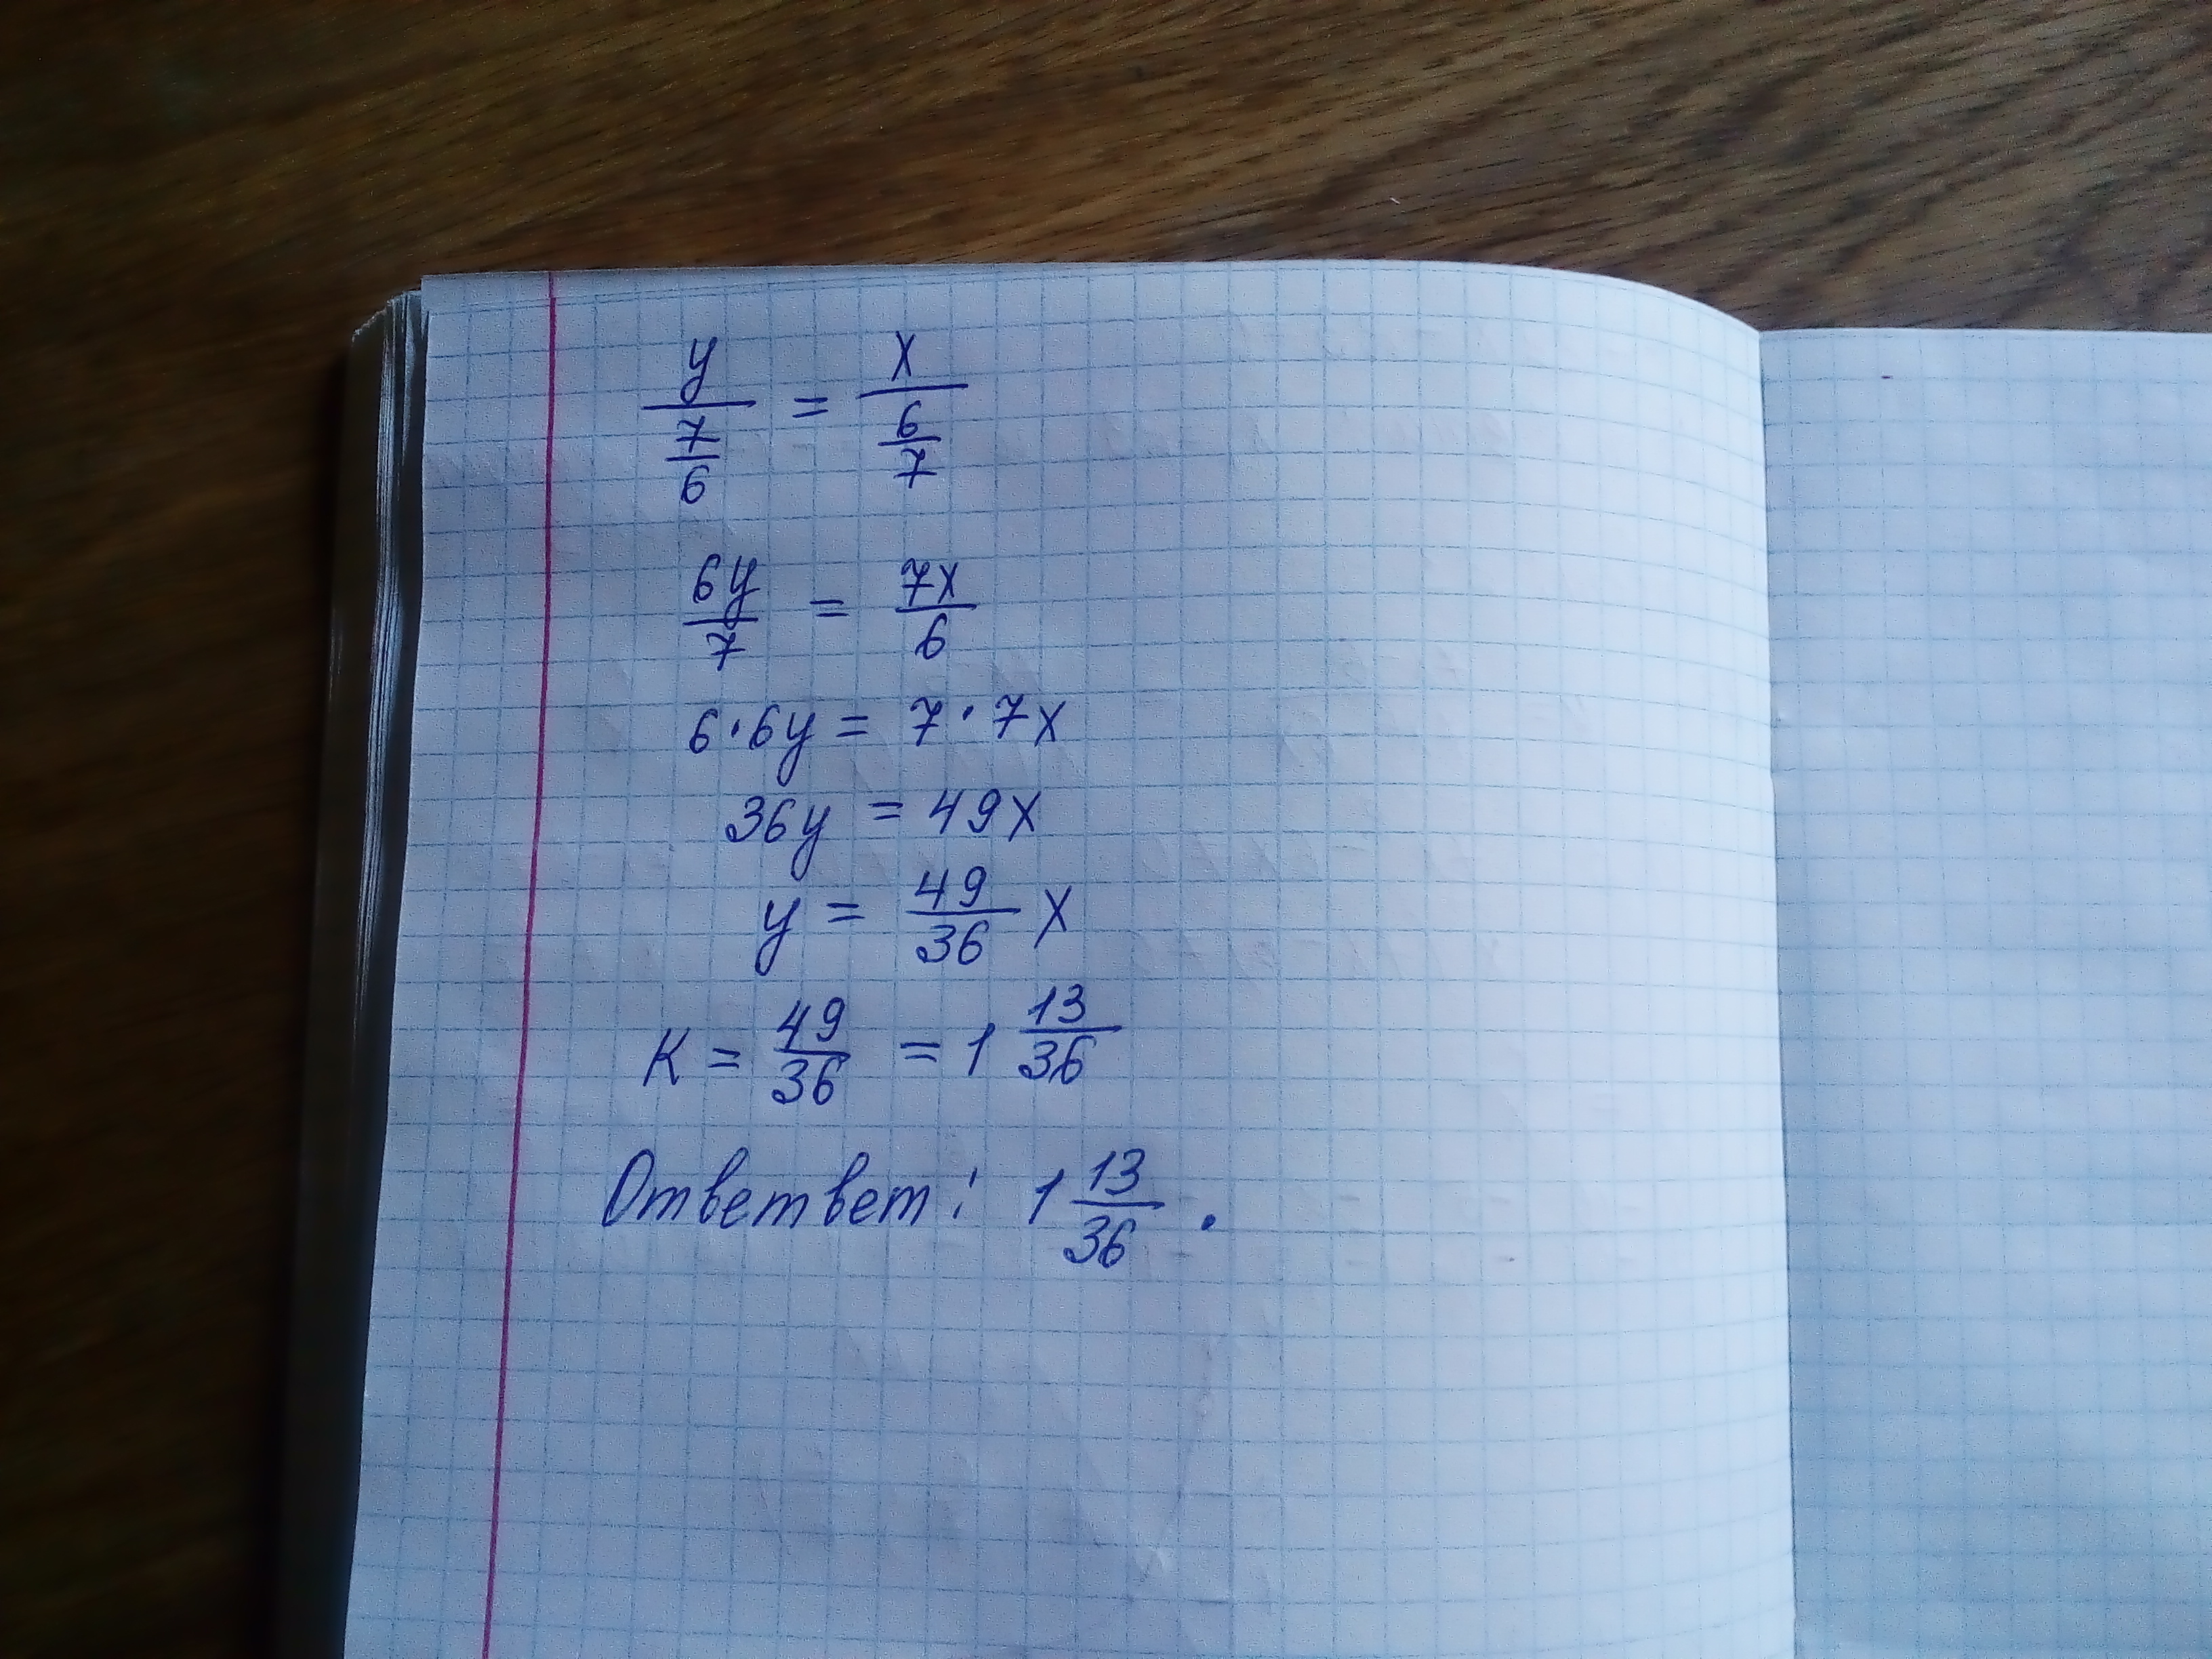 y/(7/6) = x/(6/7)
6y/7 = 7x/6
6·6y = 7·7x
36y = 49x
y = 49/36 x
K = 49/36 = 1 13/36
Ответвет: 1 13/36.